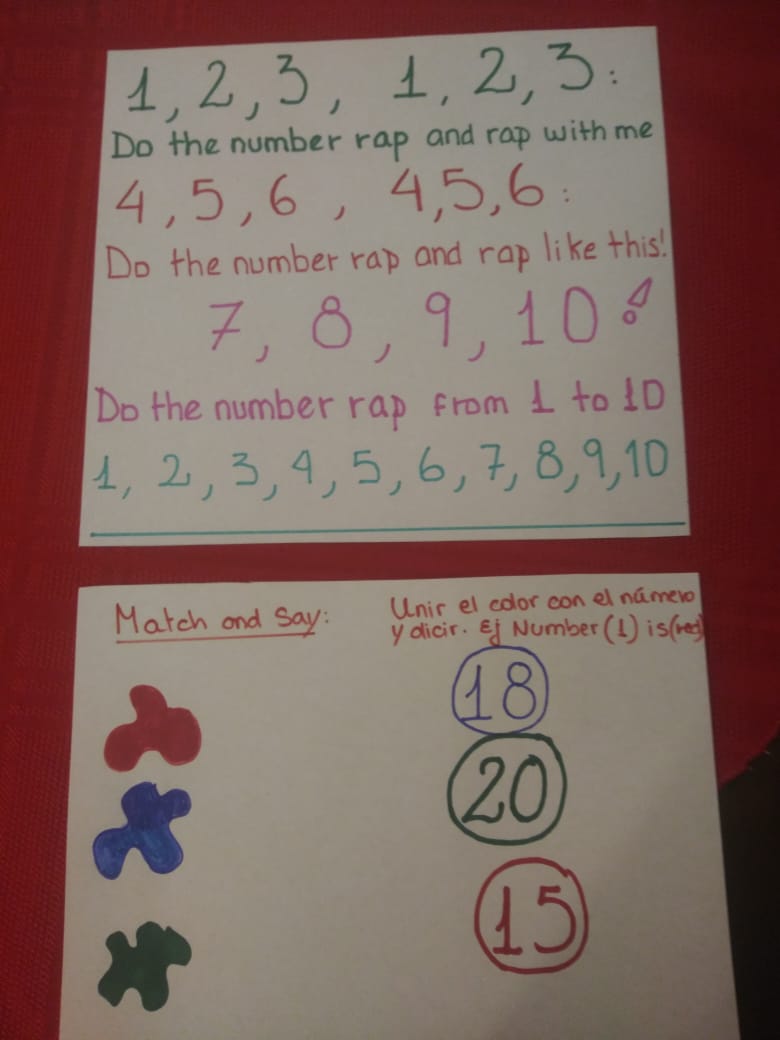 1, 2, 3, 1, 2, 3:
Do the number rap and rap with me
4, 5, 6, 4, 5, 6:
Do the number rap and rap like this!
7, 8, 9, 10!
Do the number rap from 1 to 10
1, 2, 3, 4, 5, 6, 7, 8, 9, 10
Match and Say:
Unir el color con el número
y dicir. Ej Number (1) is (red)
18
20
15